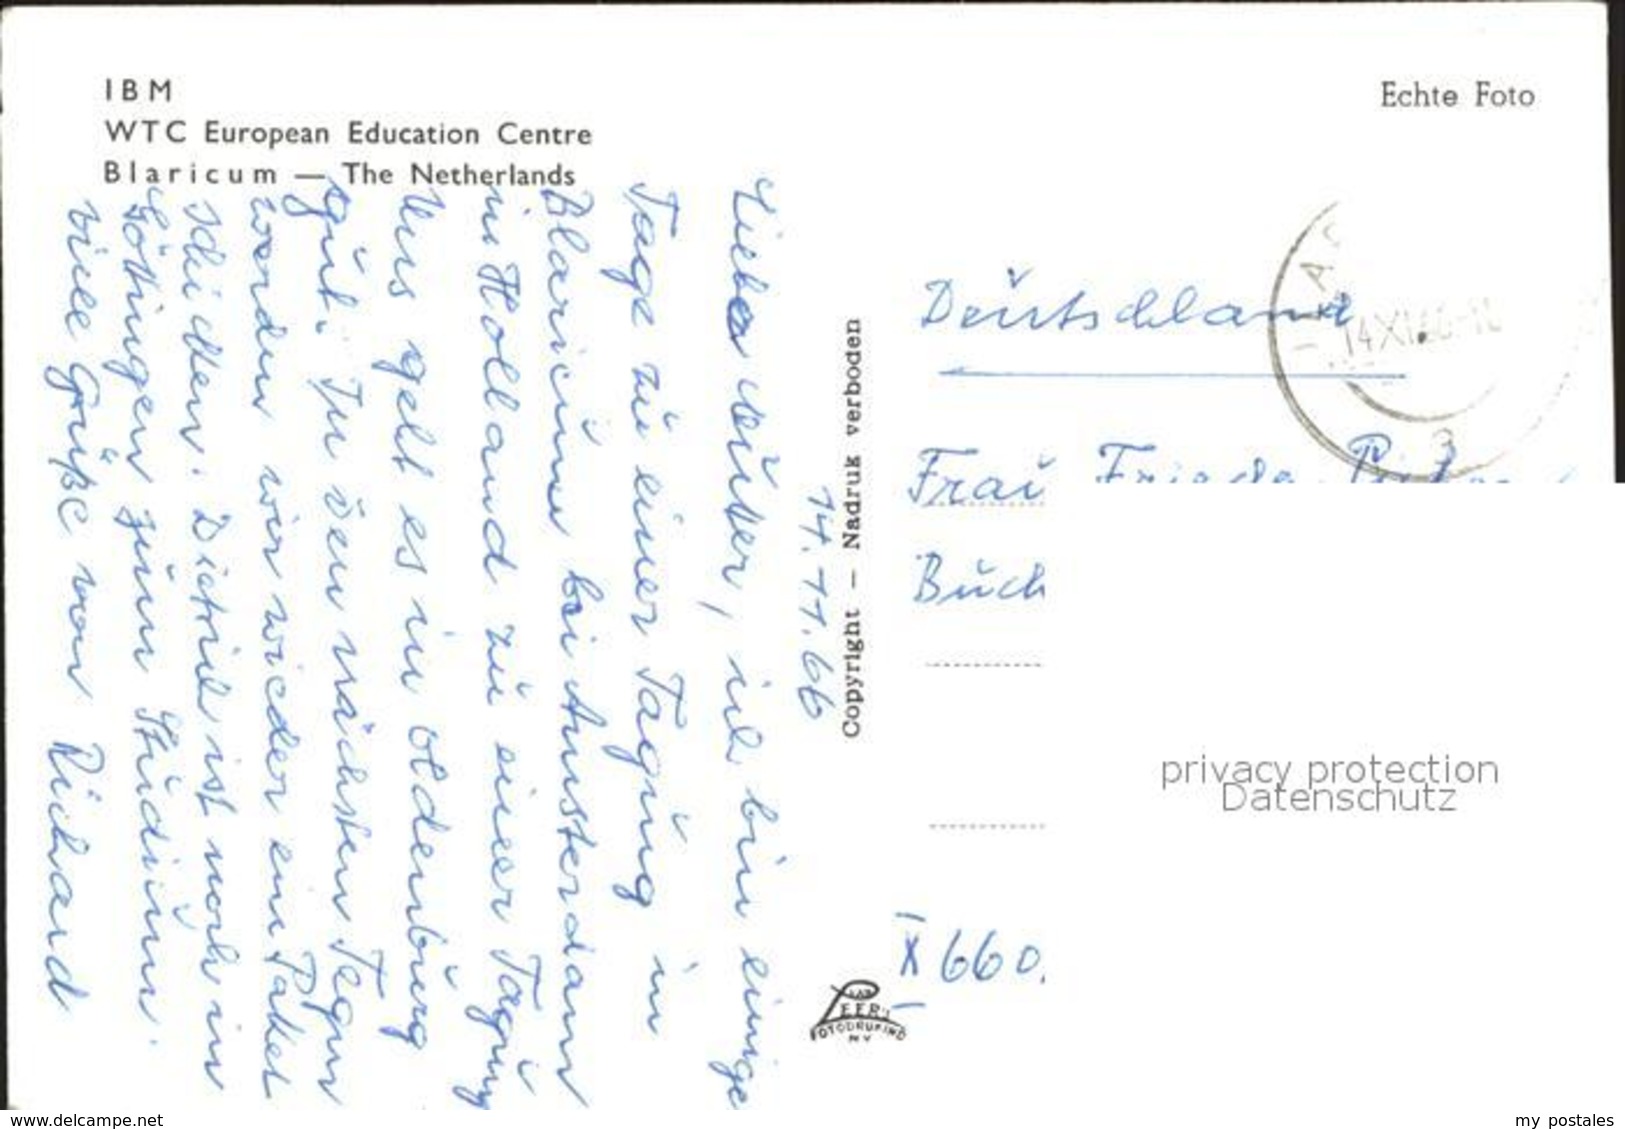 IBM
WTC European Education Centre
Blaricum — The Netherlands
Echte Foto
14.11.66
Liebe Mutter, ich bin einige
Tage zu einer Tagung in
Blaricum bei Amsterdam
in Holland zu einer Tagung
Uns geht es in Oldenburg
gut. In den nächsten Tagen
werden wir wieder ein Paket
schicken. Dietrich ist noch in
Göttingen zum Studium.
Viele Grüße von Richard
Copyright — Nadruk verboden
Deutschland
14 XI.66
3
Frau Frieda
Buch
X 660.
LEER'S
FOTODRUKIND
NV
privacy protection
Datenschutz
www.delcampe.net
my postales